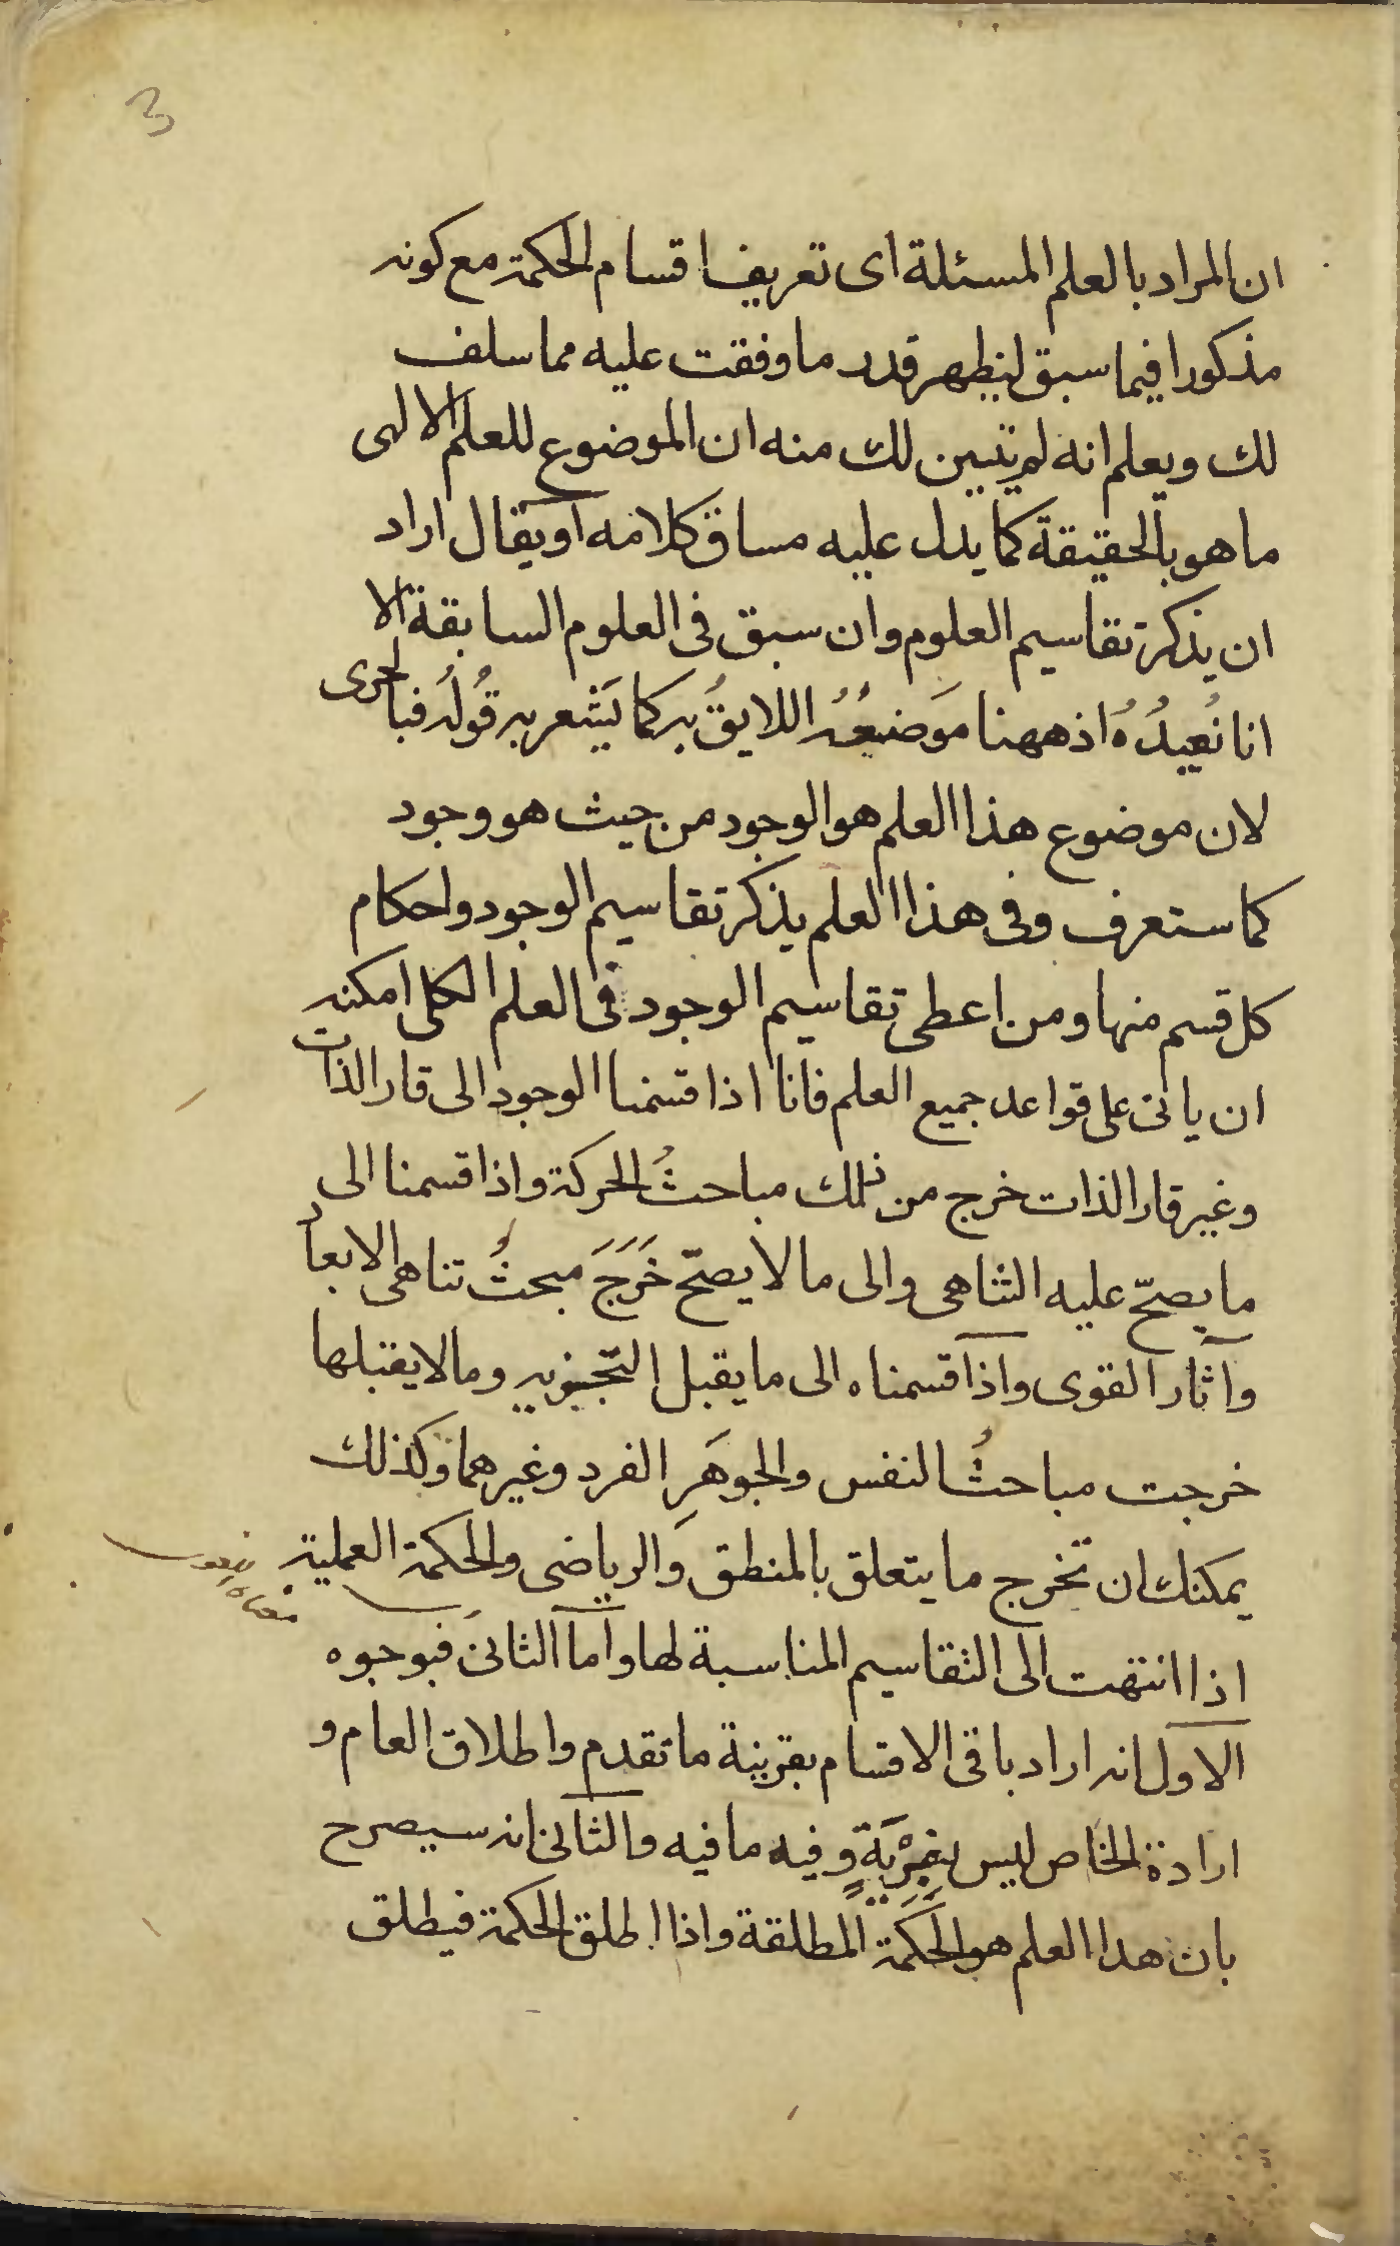 3
ان المراد بالعلم المسئلة اى تعريف اقسام الحكمة مع كونه
مذكورا فيما سبق ليظهر قدر ما وفقت عليه مما سلف
لك ويعلم انه لم يتبين لك منه ان الموضوع للعلم الالهى
ما هو بالحقيقة كما يدل عليه مساق كلامه او يقال اراد
ان يذكر تقاسيم العلوم وان سبق فى العلوم السابقة الا
انا نُعِيدُهُ اذ ههنا مَوضِعُهُ اللايقُ به كما يَشعر به قُولُه فبالحرى
لان موضوع هذا العلم هو الوجود من حيث هو وجود
كما ستعرف وفى هذا العلم يذكر تقاسيم الوجود واحكام
كل قسم منها ومن اعطى تقاسيم الوجود فى العلم الكلى امكنه
ان ياتى على قواعد جميع العلم فانا اذا قسمنا الوجود الى قار الذات
وغير قار الذات خرج من ذلك مباحثُ الحركة واذا قسمنا الى
ما يصحّ عليه التناهى والى ما لا يصحّ خَرَجَ مبحثُ تناهى الابعاد
وآثار القوى واذا قسمناه الى ما يقبل التجزيه وما لا يقبلها
خرجت مباحثُ النفس والجوهَرِ الفرد وغيرهما وكذلك
يمكنك ان تخرج ما يتعلق بالمنطق والرياضى والحكمة العملية
اذا انتهت الى التقاسيم المناسبة لها واما الثانى فبوجوه
الاول انه اراد باقى الاقسام بقرينة ما تقدم واطلاق العام و
ارادة الخاص ليس بفِرْيَةٍ وفيه ما فيه والثانى انه سيصرح
بان هذا العلم هو الحكمة المطلقة واذا اطلق الحكمة فيطلق